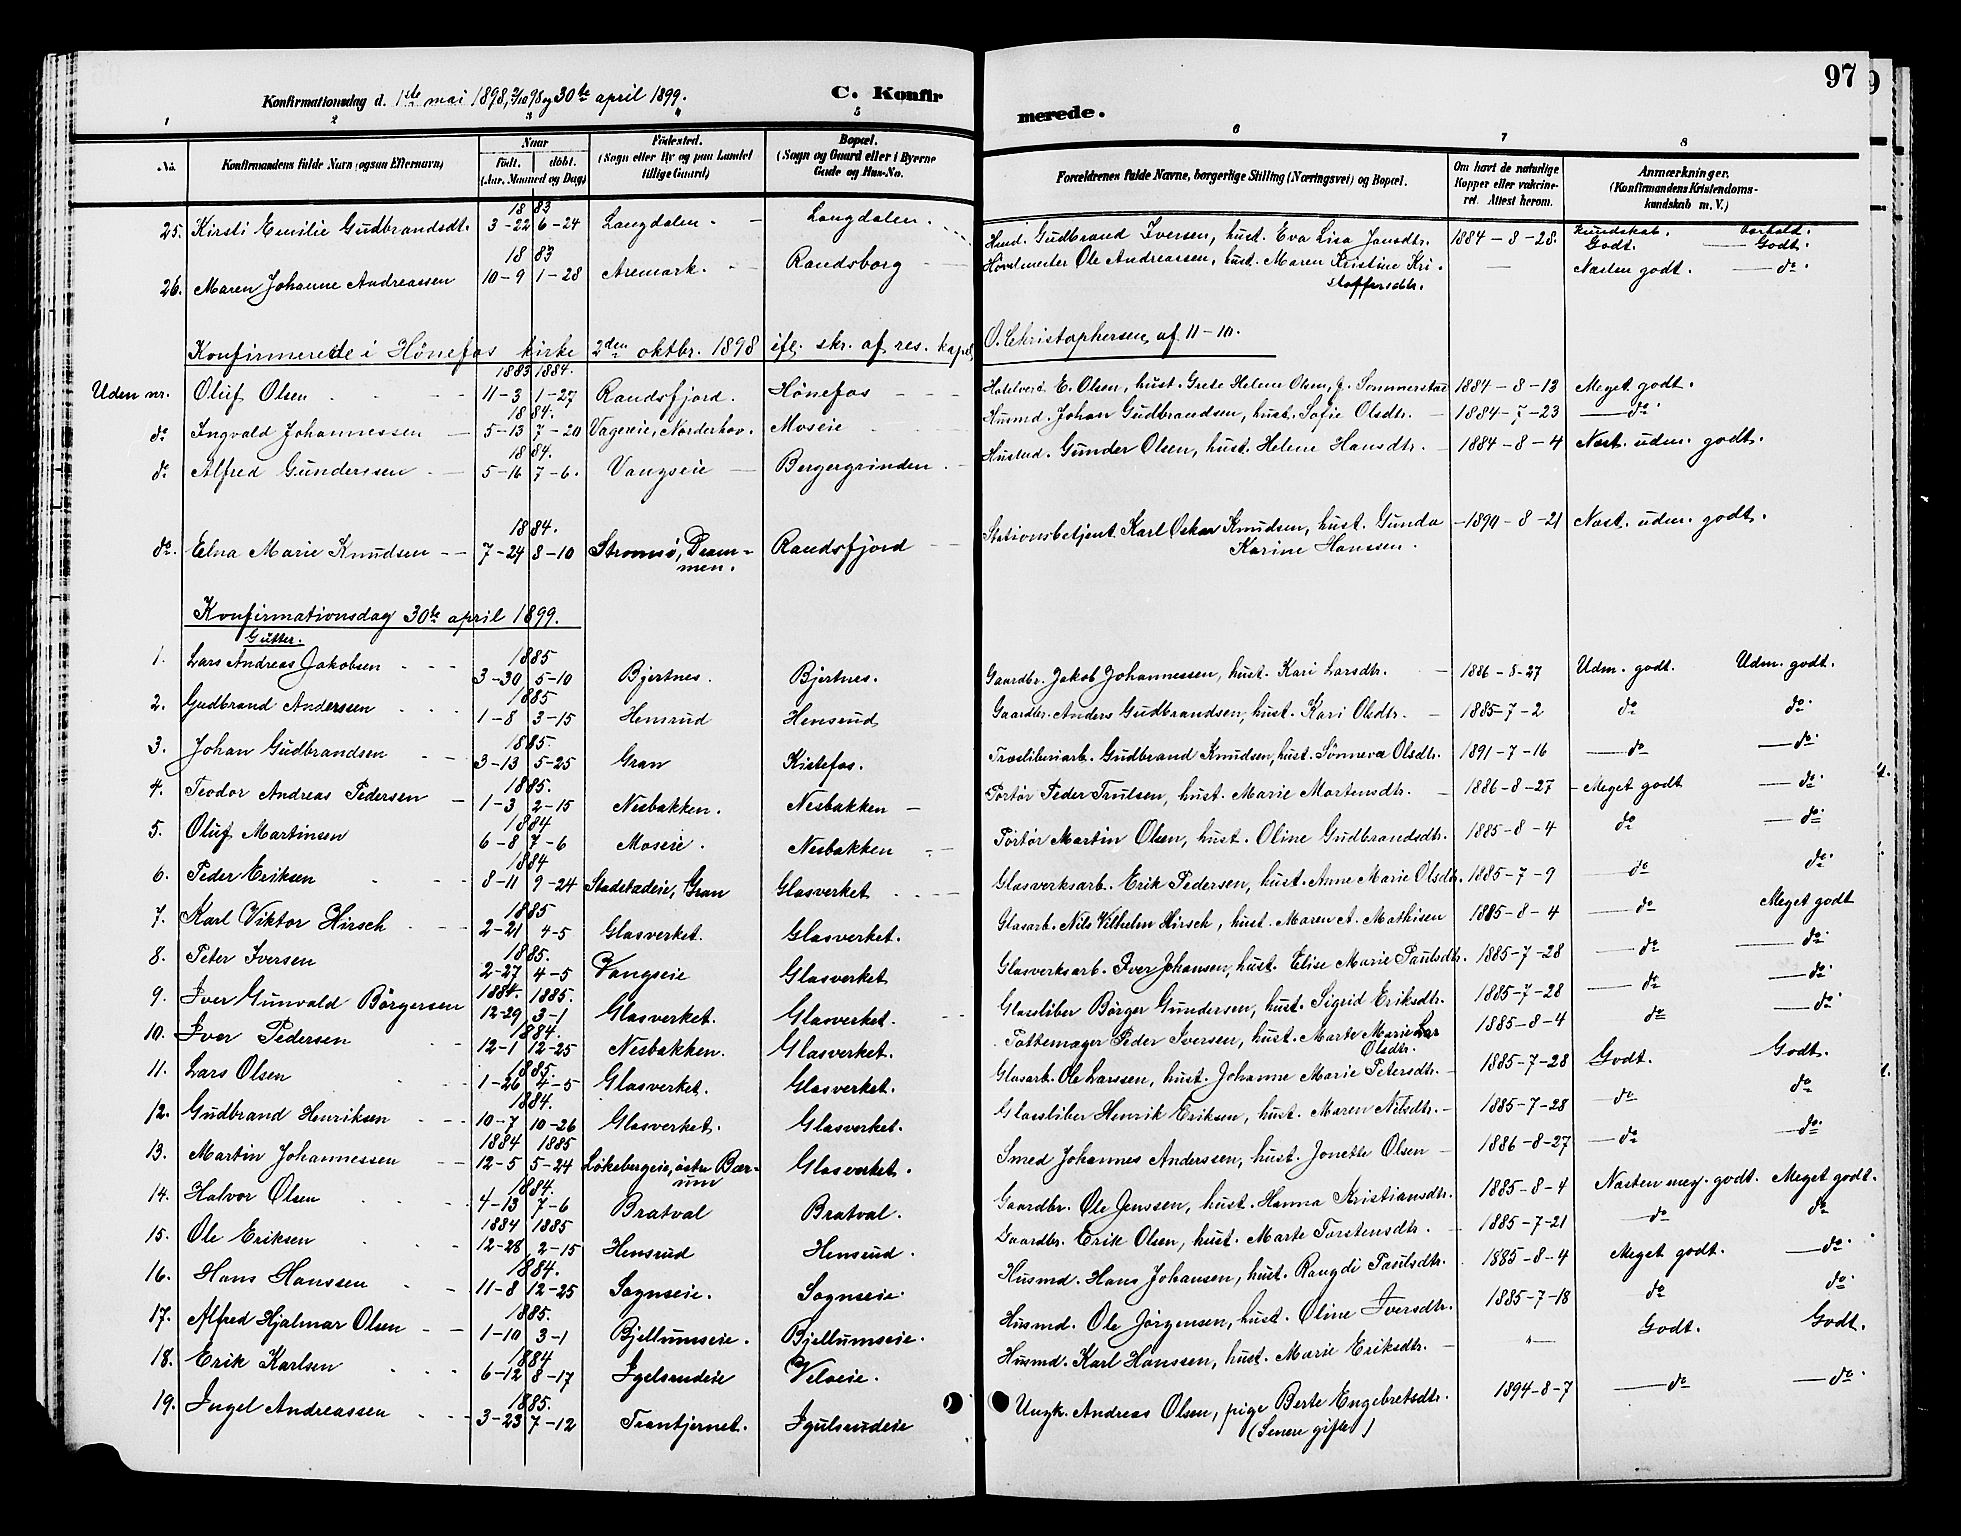 97
Konfirmationsdag d. 1ste mai 1898, 2/10 98 og 30te april 1899.
C. Konfir
merede.
1 2 3 4 5 6 7 8
No. Konfirmandens fulde Navn (ogsaa Efternavn) Naar født, døbt. (Aar, Maaned og Dag) Fødested. (Sogn eller By og paa Landet tillige Gaard) Bopæl. (Sogn og Gaard eller i Byerne Gade og Hus-No. Forældrenes fulde Navne, borgerlige Stilling (Næringsvei) og Bopæl. Om havt de naturlige Kopper eller vakcineret. Attest herom. Anmærkninger. (Konfirmandens Kristendomskundskab m. V.)
kundskab. forhold.
1883
25. Kirsti Emilie Gudbrandsdt. 3-22 6-24 Langdalen. Langdalen. Husd. Gudbrand Iversen, hust. Eva Lisa Jansdtr. 1884-8-28. Godt. Godt.
1883
26. Maren Johanne Andreassen 10-9 1-28 Aremark. Randsborg Høvelmester Ole Andreassen, hust. Maren Kristine Kri-
stoffersdtr. — Næsten godt. — do.
Konfirmerede i Hønefos kirke 2den oktbr. 1898 ifl. skr. af res. kapel. O. Christophersen af 11-10.
1883 1884.
Uden nr. Oluf Olsen 11-3 1-27 Randsfjord. Hønefos Hotelvert E. Olsen, hust. Grete Helene Olsen, f. Sommerstad 1884-8-13 Meget godt.
1884.
do Ingvald Johannessen 5-13 7-20 Vageeie, Norderhov. Moseie Husmd. Johan Gudbrandsen, hust. Sofie Olsdtr. 1884-7-23 — do.
1884.
do Alfred Gunderssen 5-16 7-6. Vangseie Bergergrinden. Gunder Olsen, hust. Helene Hansdtr. 1884-8-4 Næst. udm. godt.
1884.
do. Elna Marie Knudsen 7-24 8-10 Strømsø, Dram-
men. Randsfjord Stationsbetjent Karl Oskar Knudsen, hust. Gunda
Karine Hanssen. 1890-8-21 Næst. udm. godt.
Konfirmationsdag 30te april 1899.
Gutter.
1885
1. Lars Andreas Jakobsen 3-30 5-10 Bjertnes. Bjertnes. Gaardbr. Jakob Johannessen, hust. Kari Larsdtr. 1886-8-27 Udm. godt. Udm. godt.
1885
2. Gudbrand Anderssen 1-8 3-15 Hensrud Hensrud Gaardbr. Anders Gudbrandsen, hust. Kari Olsdtr. 1885-7-2 do do.
1885.
3. Johan Gudbrandsen 3-13 5-25 Gran Kistefos. Træsliberiarb. Gudbrand Knudsen, hust. Sønneva Olsdtr. 1891-7-16 do do.
1885.
4. Teodor Andreas Pedersen 1-3 2-15 Nesbakken. Nesbakken Portør Peder Trulsen, hust. Marie Mortensdtr. 1886-8-27 Meget godt do.
1884
5. Oluf Martinsen 6-8 7-6 Moseie. Nesbakken Portør Martin Olsen, hust. Oline Gudbrandsdtr. 1885-8-4 do do.
1884
6. Peder Eriksen 8-11 9-24 Stadstadeie, Gran Glasverket Glasverksarb. Erik Pedersen, hust. Anne Marie Olsdtr. 1885-7-9 do do.
1885
7. Karl Viktor Hirsch 2-21 4-5 Glasverket. Glasverket. Glasarb. Nils Vilhelm Hirsch, hust. Maren A. Mathisen 1885-8-4 do Meget godt
1885.
8. Peter Iversen 2-27 4-5 Vangseie Glasverket Glasverksarb. Iver Johansen, hust. Elise Marie Paulsdtr. 1885-7-28 do do.
1884. 1885.
9. Iver Gunvald Børgersen 12-29 3-1 Glasverket. Glasverket. Glassliber Børger Gundersen, hust. Sigrid Eriksdtr. 1885-7-28 do do.
1884.
10. Iver Pedersen 12-1 12-25 Nesbakken. Glasverket. Pottemager Peder Iversen, hust. Marte Marie
Olsdtr. 1885-8-4 do do.
1885.
11. Lars Olsen 1-26 4-5 Glasverket. Glasverket. Glasarb. Ole Larssen, hust. Johanne Marie Petersdtr. 1885-7-28 Godt. Godt.
1884.
12. Gudbrand Henriksen 10-7 10-26 Glasverket. Glasverket. Glassliber Henrik Eriksen, hust. Maren Nilsdtr. 1885-7-28 do do
1884 1885
13. Martin Johannessen 12-5 5-24 Løkebergeie, østre Bær-
um Glasverket. Smed Johannes Anderssen, hust. Jonette Olsen 1886-8-27 do do.
1884.
14. Halvor Olsen 4-13 7-6 Bratval Bratval. Gaardbr. Ole Jenssen, hust. Hanna Kristiansdtr. 1885-8-4 Næsten meg. godt. Meget godt.
1884 1885
15. Ole Eriksen 12-28 2-15 Hensrud Hensrud. Gaardbr. Erik Olsen, hust. Marte Torstensdtr. 1885-7-21 do do
1884.
16. Hans Hanssen 11-8 12-25 Sognseie. Sognseie. Husmd. Hans Johansen, hust. Rangdi Paulsdtr. 1885-8-4 Meget godt. do.
1885.
17. Alfred Hjalmar Olsen 1-10 3-1 Bjellumseie. Bjellumseie. Husmd. Ole Jørgensen, hust. Oline Iversdtr. 1885-7-18 do do.
1884
18. Erik Karlsen 6-12 8-17 Igelsrudeie Veloeie. Husmd. Karl Hanssen, hust. Marie Eriksdtr. " — Godt. Godt.
1885.
19. Ingel Andreassen 3-23 7-12 Trantjernet. Igulsrudeie Ungk. Andreas Olsen, pige Berte Engebretsdtr.
(Senere gifte) 1894-8-7 do do.